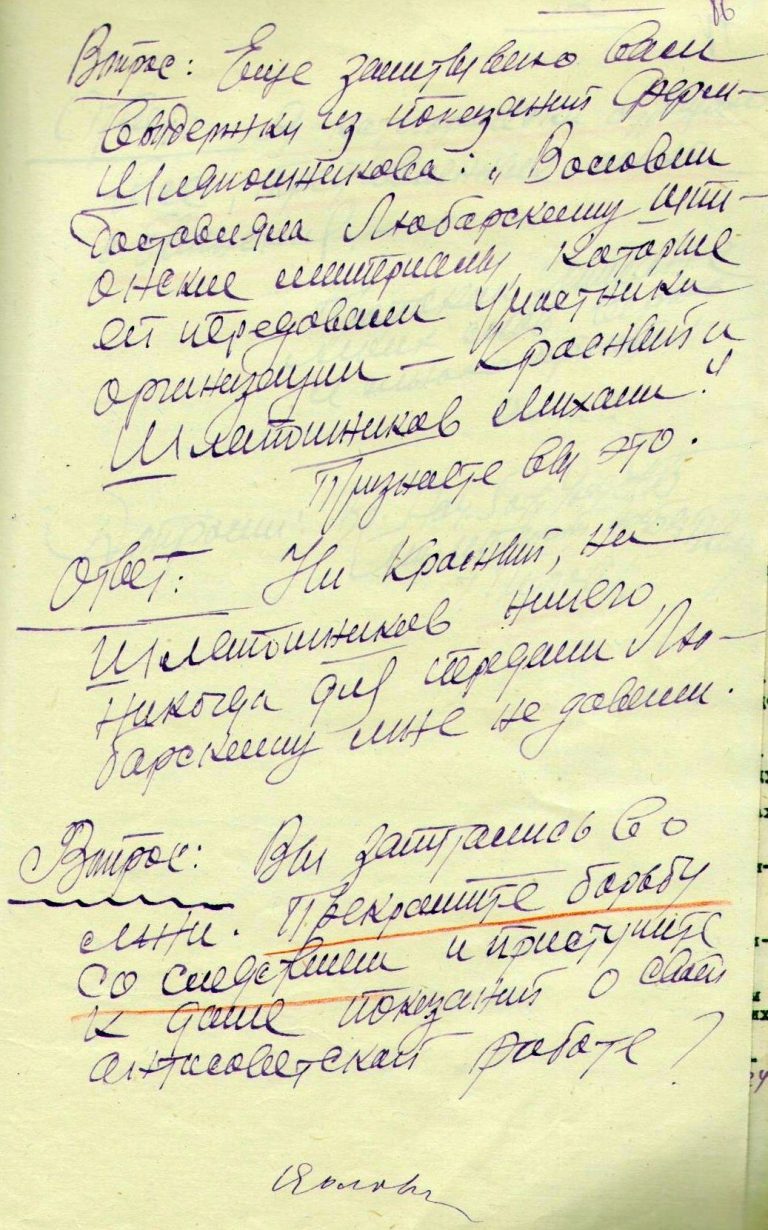 Вопрос: Еще зачитываю вам
выдержку из показаний Ферм-
Шляпошникова: „Воловик
доставляла Любарскому шпи-
онские материалы, которые
ей передавали участники
организации — Красный и
Шляпошников Михаил."
Признаете вы это.
Ответ: Ни Красный, ни
Шляпошников ничего,
никогда для передачи Лю-
барскому мне не давали.
Вопрос: Вы запутались во
лжи. Прекратите борьбу
со следствием и приступите
к даче показаний о своей
антисоветской работе?